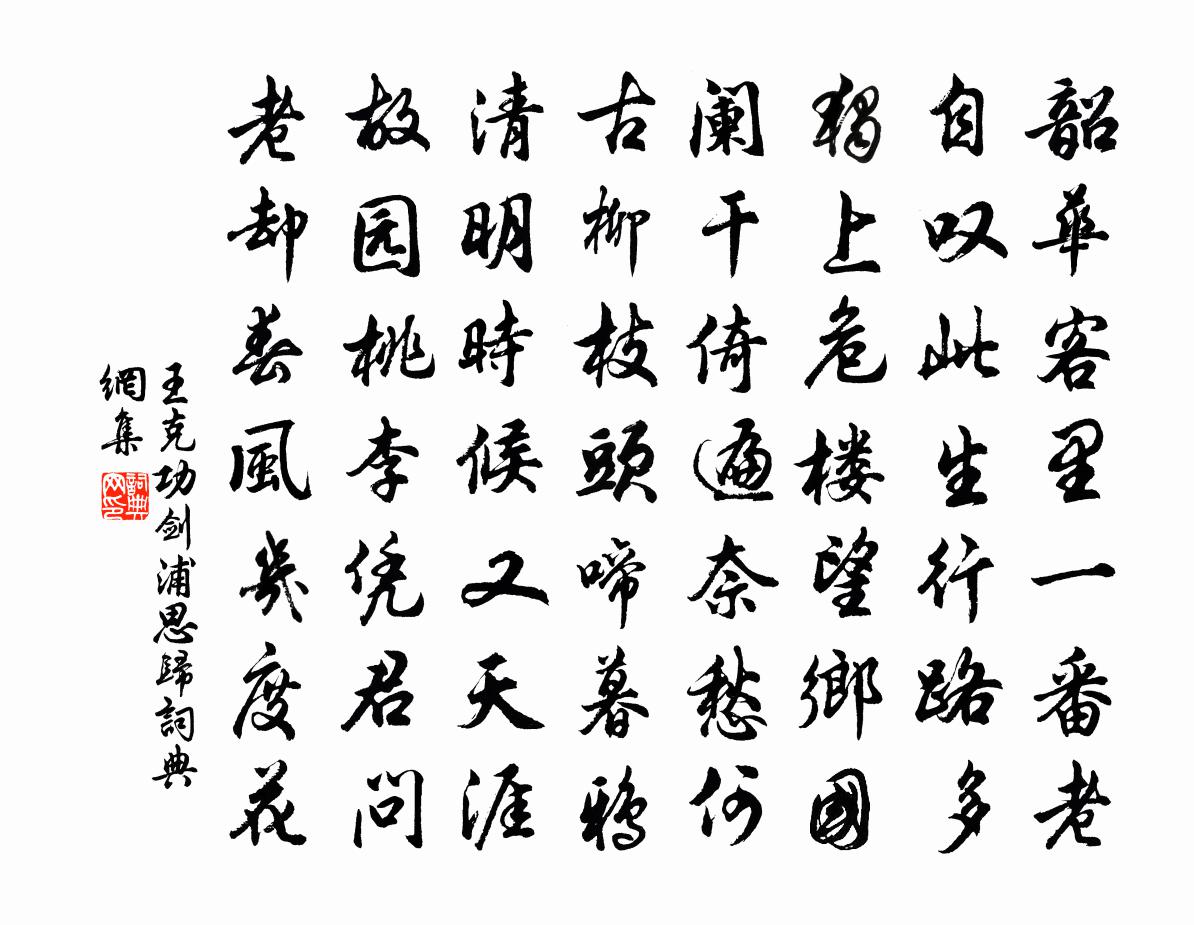 韶華客里一番老
自叹此生行路多
獨上危楼望鄉國
阑干倚遍奈愁何
古柳枝頭啼暮鴉
清明時候又天涯
故园桃李凭君问
老却春風幾度花
王克功剑浦思歸詞典
網集
詞典
网印